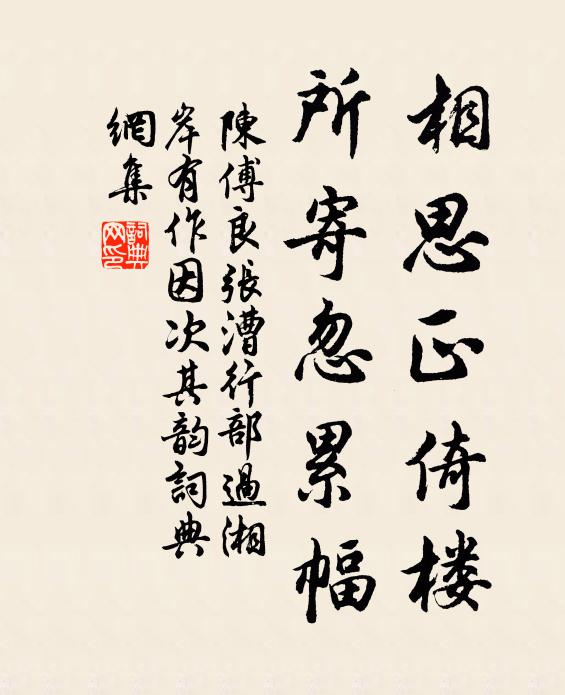 相思正倚楼
所寄忽累幅
陳傅良張漕行部過湘
岸有作因次其韵詞典
網集
詞典
网印